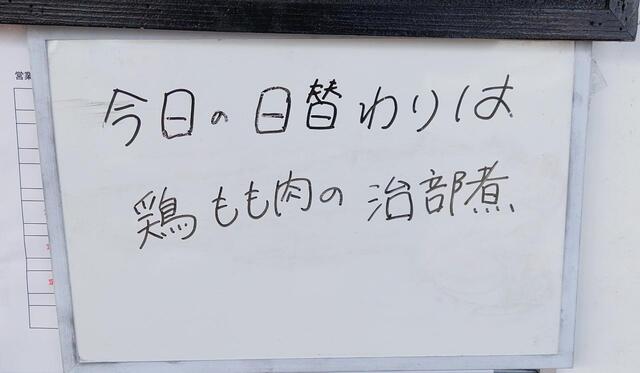 今日の日替わりは
鶏もも肉の治部煮
営業